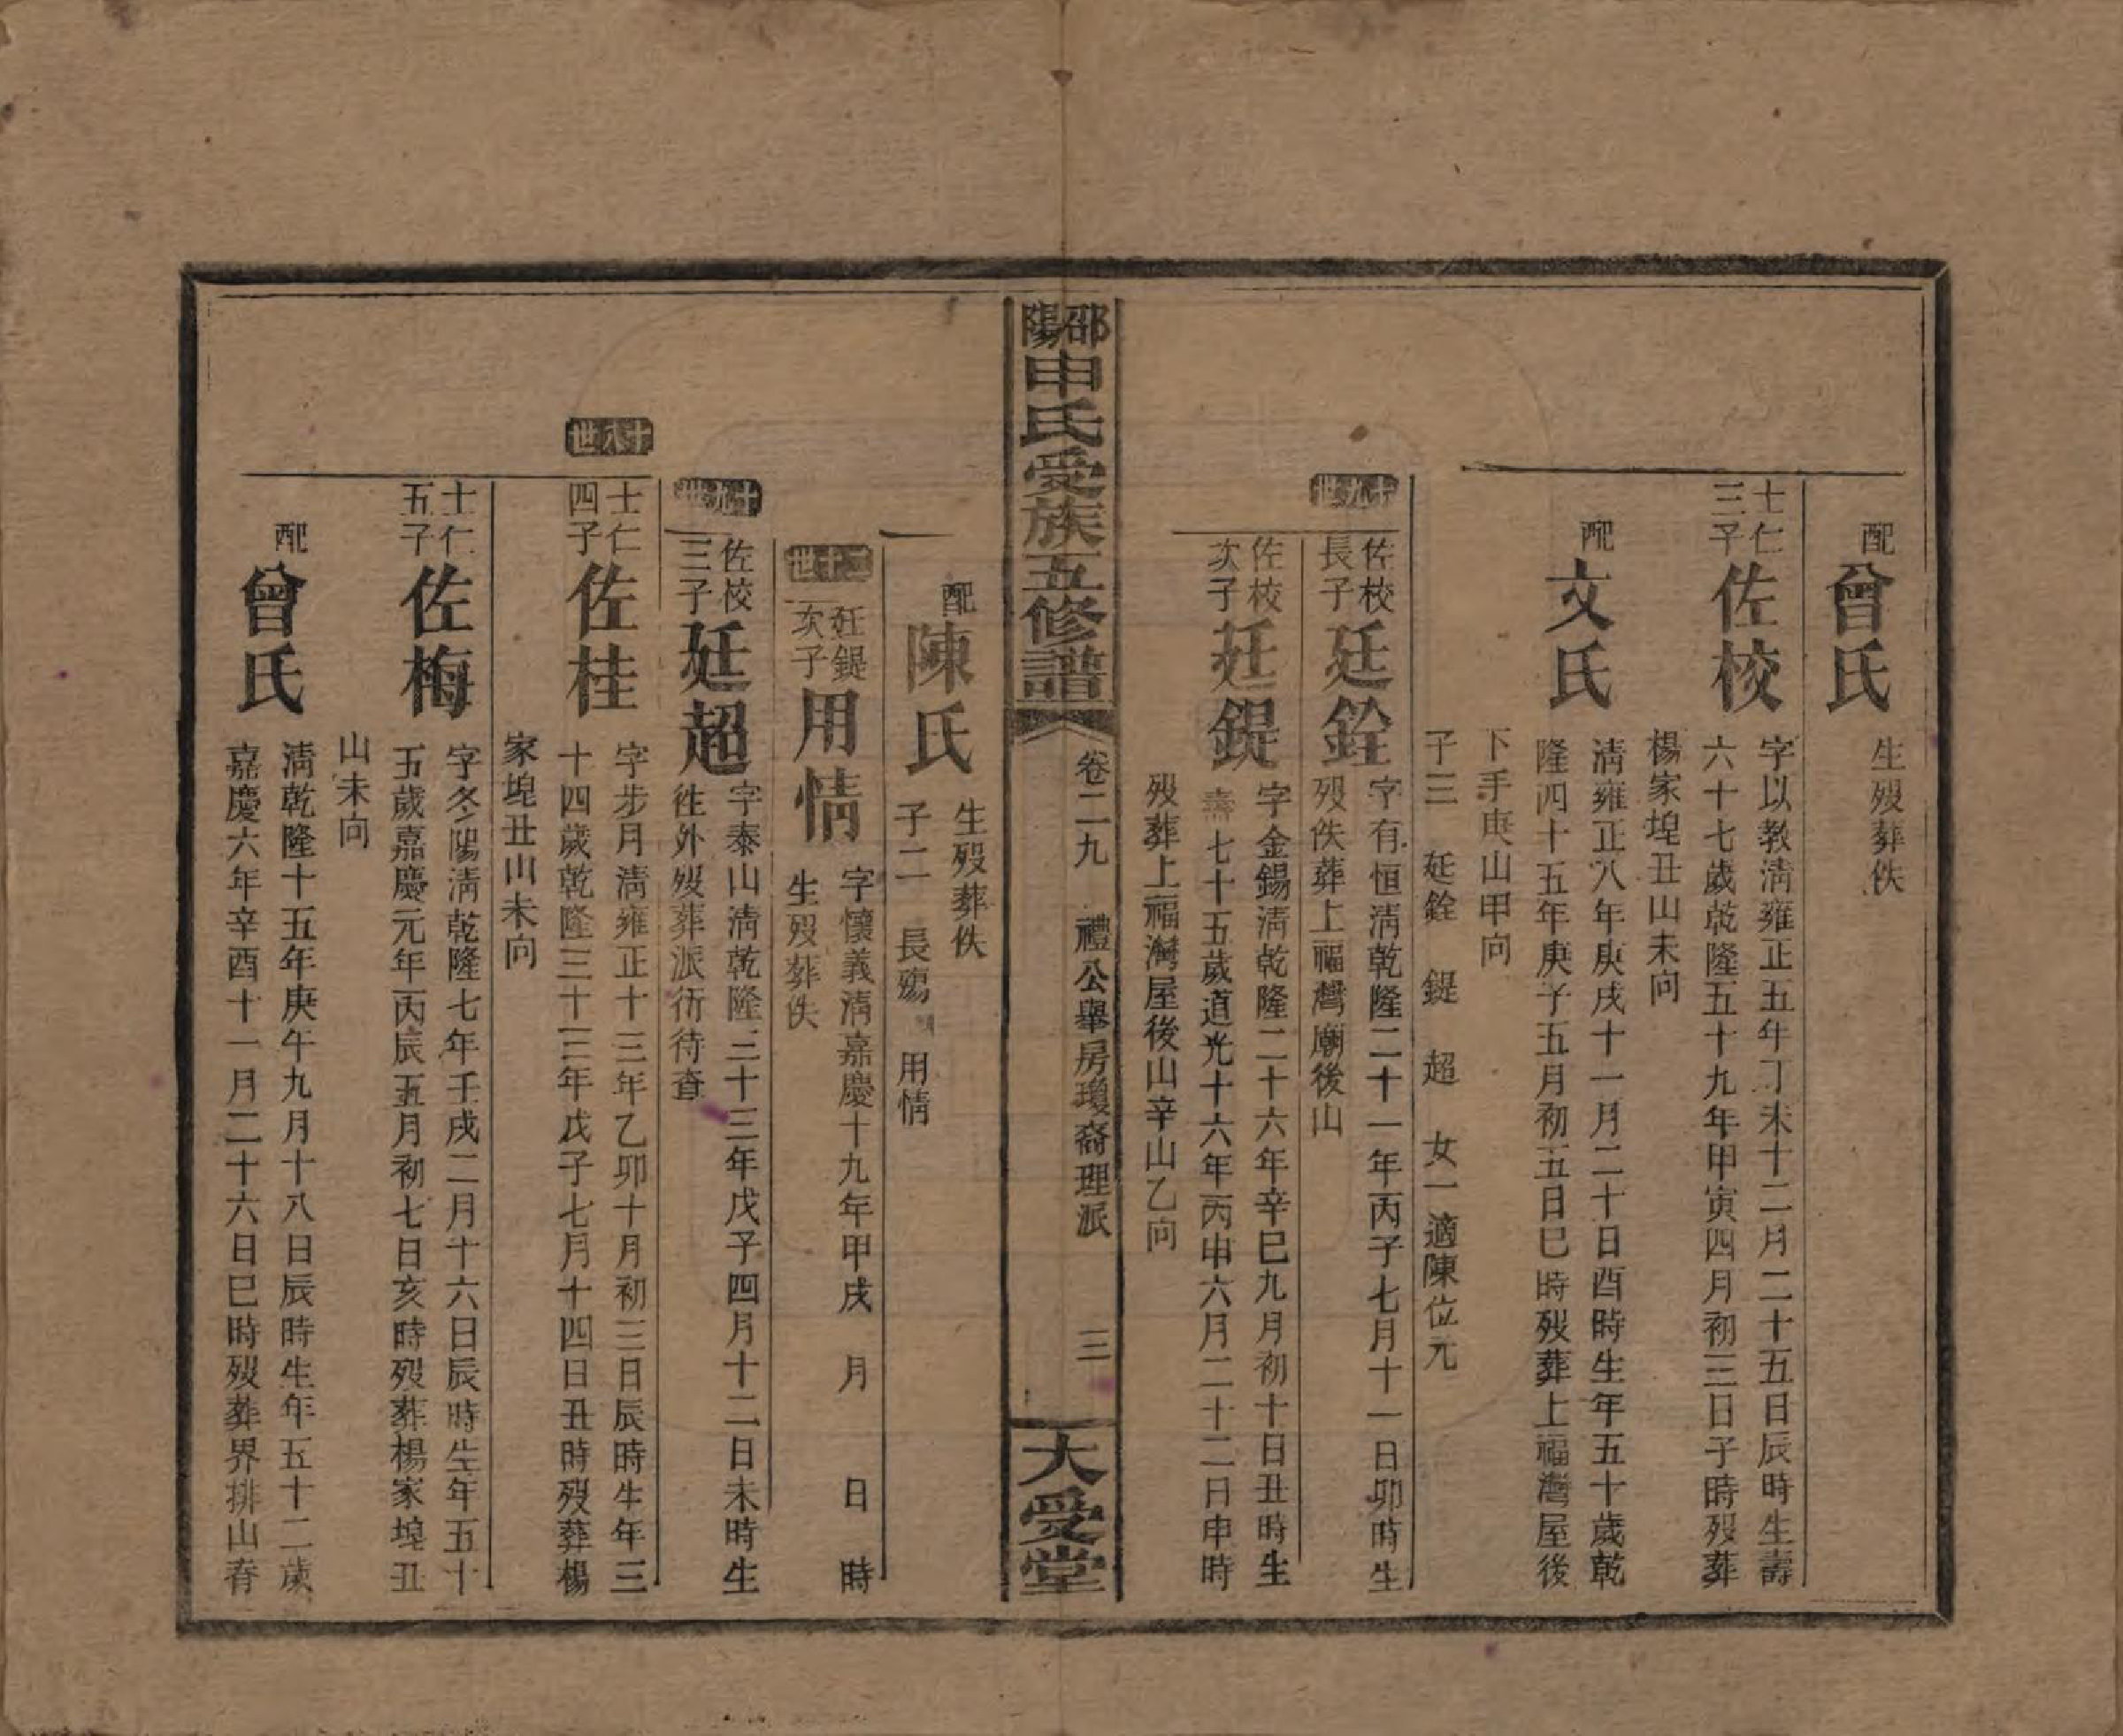 配
曾氏
生歿葬佚
士仁
三子
佐校
字以教清雍正五年丁未十二月二十五日辰時生壽
六十七歲乾隆五十九年甲寅四月初三日子時歿葬
楊家塊丑山未向
配
文氏
清雍正八年庚戌十一月二十日酉時生年五十歲乾
隆四十五年庚子五月初五日巳時歿葬上福灣屋後
下手庚山甲向
子三 廷銓 鍉 超 女一適陳位元
十九世
佐校
長子
廷銓
字有恒清乾隆二十一年丙子七月十一日卯時生
歿佚葬上福灣廟後山
佐校
次子
廷鍉
字金錫清乾隆二十六年辛巳九月初十日丑時生
壽七十五歲道光十六年丙申六月二十二日申時
歿葬上福灣屋後山辛山乙向
邵陽申氏受族五修譜
卷二九 禮公舉房瓊裔理派 三
大受堂
配
陳氏
生歿葬佚
子二 長殤 用情
二十世
廷鍉
次子
用情
字懷義清嘉慶十九年甲戌 月 日 時
生歿葬佚
十九世
佐校
三子
廷超
字泰山清乾隆三十三年戊子四月十二日未時生
徃外歿葬派衍待查
十八世
士仁
四子
佐桂
字步月清雍正十三年乙卯十月初三日辰時生年三
十四歲乾隆三十三年戊子七月十四日丑時歿葬楊
家塊丑山未向
士仁
五子
佐梅
字冬陽清乾隆七年壬戌二月十六日辰時生年五十
五歲嘉慶元年丙辰五月初七日亥時歿葬楊家塊丑
山未向
配
曾氏
清乾隆十五年庚午九月十八日辰時生年五十二歲
嘉慶六年辛酉十一月二十六日巳時歿葬界排山脊